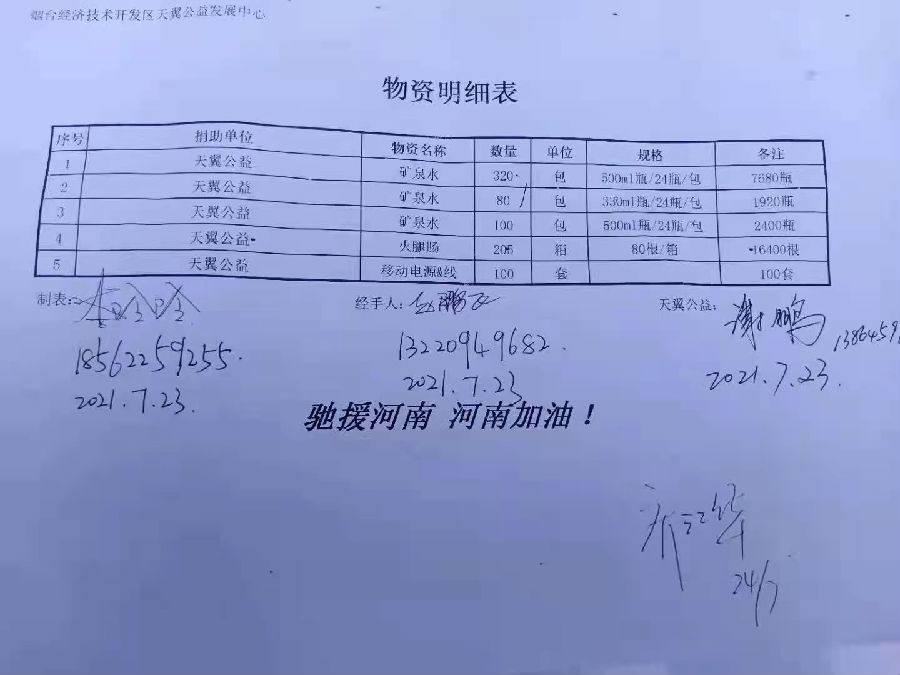 烟台经济技术开发区天翼公益发展中心
物资明细表
序号 捐助单位 物资名称 数量 单位 规格 备注
1 天翼公益 矿泉水 320 包 500ml瓶/24瓶/包 7680瓶
2 天翼公益 矿泉水 80 包 330ml瓶/24瓶/包 1920瓶
3 天翼公益 矿泉水 100 包 500ml瓶/24瓶/包 2400瓶
4 天翼公益 火腿肠 205 箱 80根/箱 16400根
5 天翼公益 移动电源&线 100 套 100套
制表: 经手人: 天翼公益: 谢鹏
18562259255. 13220949682. 1386459
2021.7.23. 2021.7.23 2021.7.23.
驰援河南 河南加油！
24/7